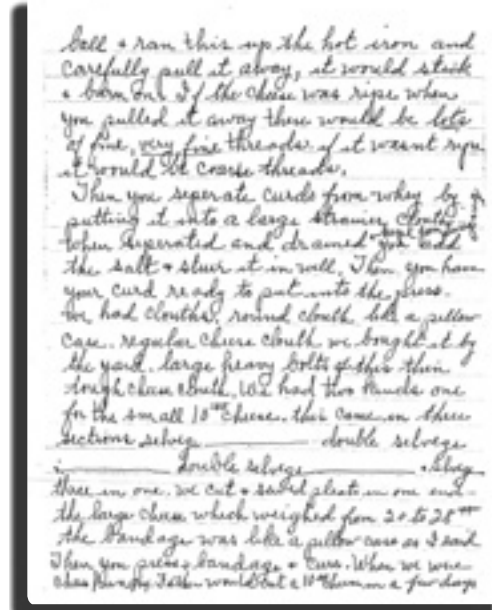 ball + ran this up the hot iron and
carefully pull it away, it would stick
+ burn on. If the cheese was ripe when
you pulled it away there would be lots
of fine, very fine threads if it wasnt ripe
it would be coarse threads.
Then you seperate curds from whey by
putting it into a large strainer clouth
when seperated and drained you add
the salt + stir it in well. Then you have
your curd ready to put into the press.
We had clouths, round clouth like a pillow
case. regular cheese clouth we bought it by
the yard. large heavy bolts of this thin
tough cheese clouth. We had two kinds one
for the small 10 cheese. this came in three
sections selveg ______ double selvege
______ double selvege ______ selveg
three in one. we cut + sewed pleats in one end
the large cheese which weighed from 20 to 28
the bandage was like a pillow case as I said
Then you press, bandage + cure. When we were
cheese hungry Father would cut a 10 in a few days